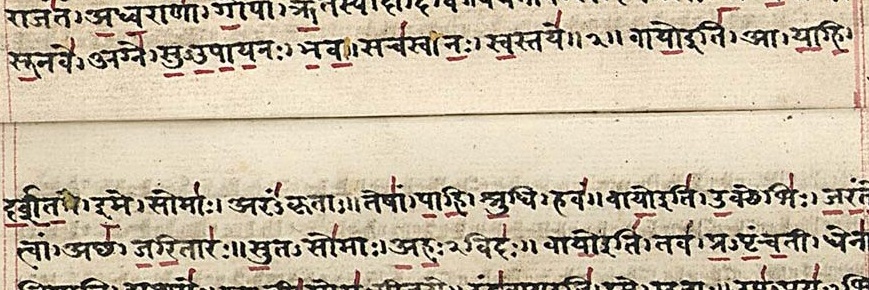 राजंतं। अध्वराणां। गोपां। ऋतस्य।
सूनवे। अग्ने। सुऽउपायनः। भव॥ सचस्व। नः। स्वस्तये॥२॥ वायोइति। आ। याहि।
दर्शत। इमे। सोमाः। अरंऽकृताः॥ तेषां। पाहि। श्रुधि। हवं॥ वायोइति। उक्थेभिः। जरंते
त्वां। अच्छ। जरितारः॥ सुतऽसोमाः। अहःऽविदः॥ वायोइति। तव। प्रऽपृंचती। धेना